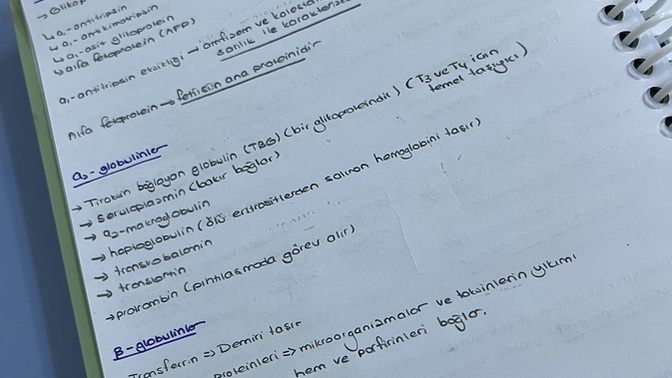 → Glikop
↳ α₁-antitripsin
↳ α₁-antikimotripsin
↳ α₁-asit glikoprotein
↳ alfa fetoprotein (AFP)
α₁-antitripsin eksikliği → amfizem ve kolestatik
sarılık ile karakterize
Alfa fetoprotein → fetüsün ana proteinidir
α₂-globulinler
→ Tiroksin bağlayan globulin (TBG) (bir glikoproteindir) (T3 ve T4 için
temel taşıyıcı)
→ Seruloplazmin (bakır bağlar)
→ α₂-makroglobulin
→ haptoglobulin (ölü eritrositlerden salınan hemoglobini taşır)
→ transkobalamin
→ transkortin
→ protrombin (pıhtılaşmada görev alır)
β-globulinler
Transferrin => Demiri taşır
proteinleri => mikroorganizmalar ve toksinlerin yıkımı
hem ve porfirinleri bağlar.